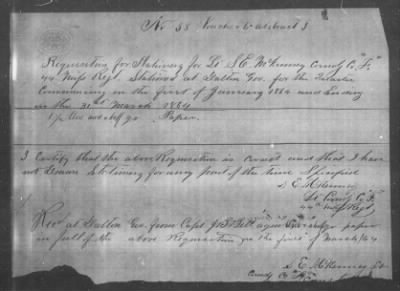 No 58 Voucher to abstract
Requisition for Stationery for Lt S. E. McKinney Comdg Co "F"
44th Miss Regt. Stationed at Dalton Geo. for the Quarter
Commencing on the first of January 1864 and Ending
on the 31st March 1864
Paper.
I Certify that the above Requisition is Correct and that I have
not Drawn Stationery for any part of the time Specified
S E McKinney
Lt Comdg Co F
44th Miss Regt
Recd at Dalton Geo. from Capt paper
in full of the above Requisition of March 1864
S. E. McKinney Lt
Comdg Co F